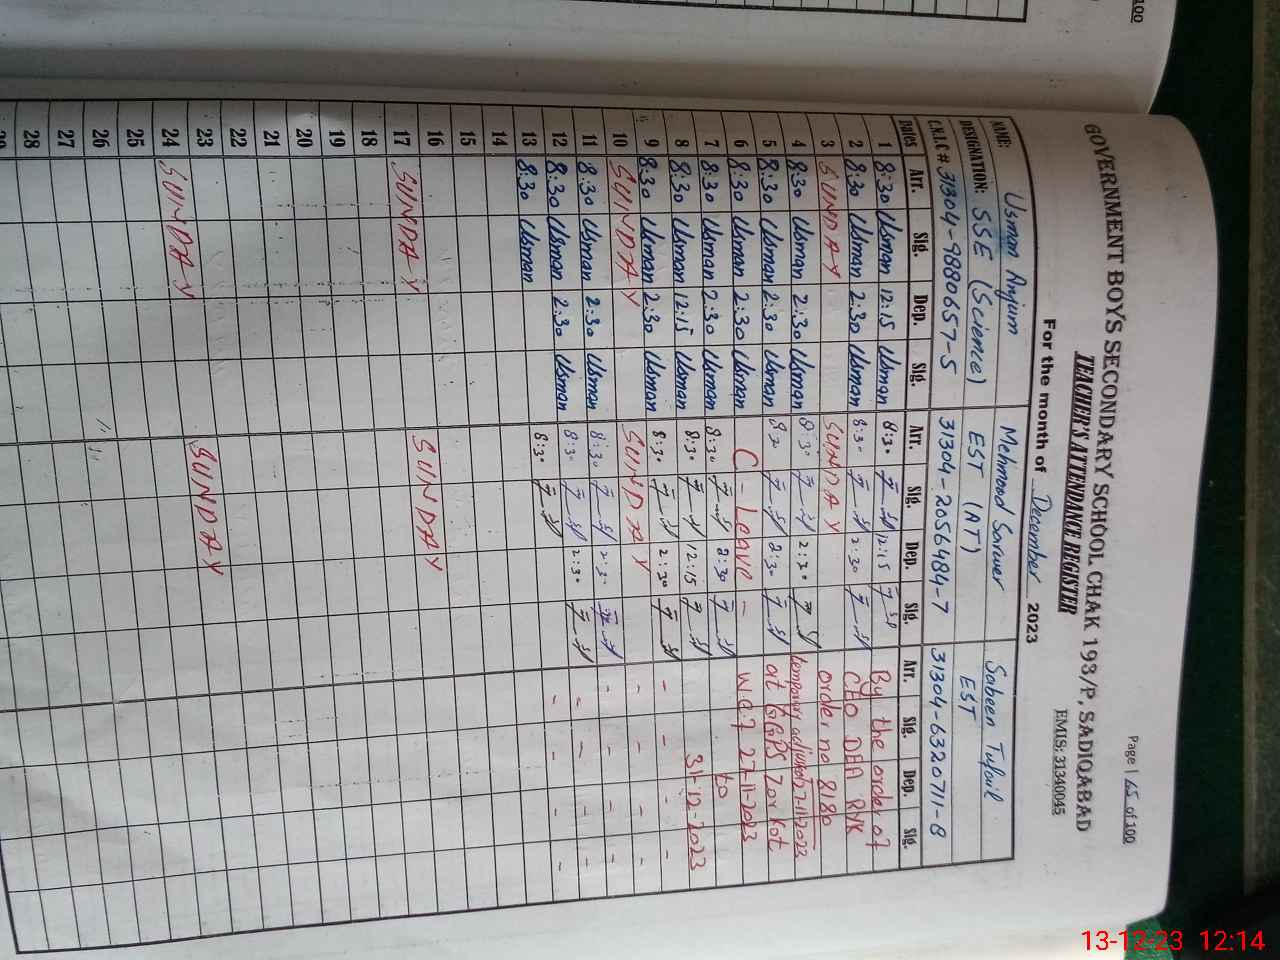 Page | 65 of 100
GOVERNMENT BOYS SECONDARY SCHOOL CHAK 193/P, SADIQABAD
TEACHER'S ATTENDANCE REGISTER EMIS: 31340045
For the month of December 2023
NAME: Usman Anjum Mehmood Sarwer Sabeen Tufail
DESIGNATION: SSE (Science) EST (AT) EST
C.N.I.C # 31304-9880657-5 31304-2056484-7 31304-6320711-8
Dates Arr. Sig. Dep. Sig. Arr. Sig. Dep. Sig. Arr. Sig. Dep. Sig.
1 8:30 Usman 12:15 Usman 8:30 12:15 By the order of
2 8:30 Usman 2:30 Usman 8:30 2:30 CEO DEA RYK
3 SUNDAY SUNDAY order no 8180
4 8:30 Usman 2:30 Usman 8:30 2:30 temporary 27-11-2023
5 8:30 Usman 2:30 Usman 8:30 2:30 at GGPS Zor Kot
6 8:30 Usman 2:30 Usman C - Leave - w.e.f 27-11-2023
7 8:30 Usman 2:30 Usman 8:30 2:30 to
8 8:30 Usman 12:15 Usman 8:30 12:15 31-12-2023
9 8:30 Usman 2:30 Usman 8:30 2:30 - - - -
10 SUNDAY SUNDAY - - - -
11 8:30 Usman 2:30 Usman 8:30 2:30 - - - -
12 8:30 Usman 2:30 Usman 8:30 2:30 - - - -
13 8:30 Usman 8:30 - - - -
14
15
16
17 SUNDAY SUNDAY
18
19
20
21
22
23
24 SUNDAY SUNDAY
25
26
27
28
29
100
13-12-23 12:14